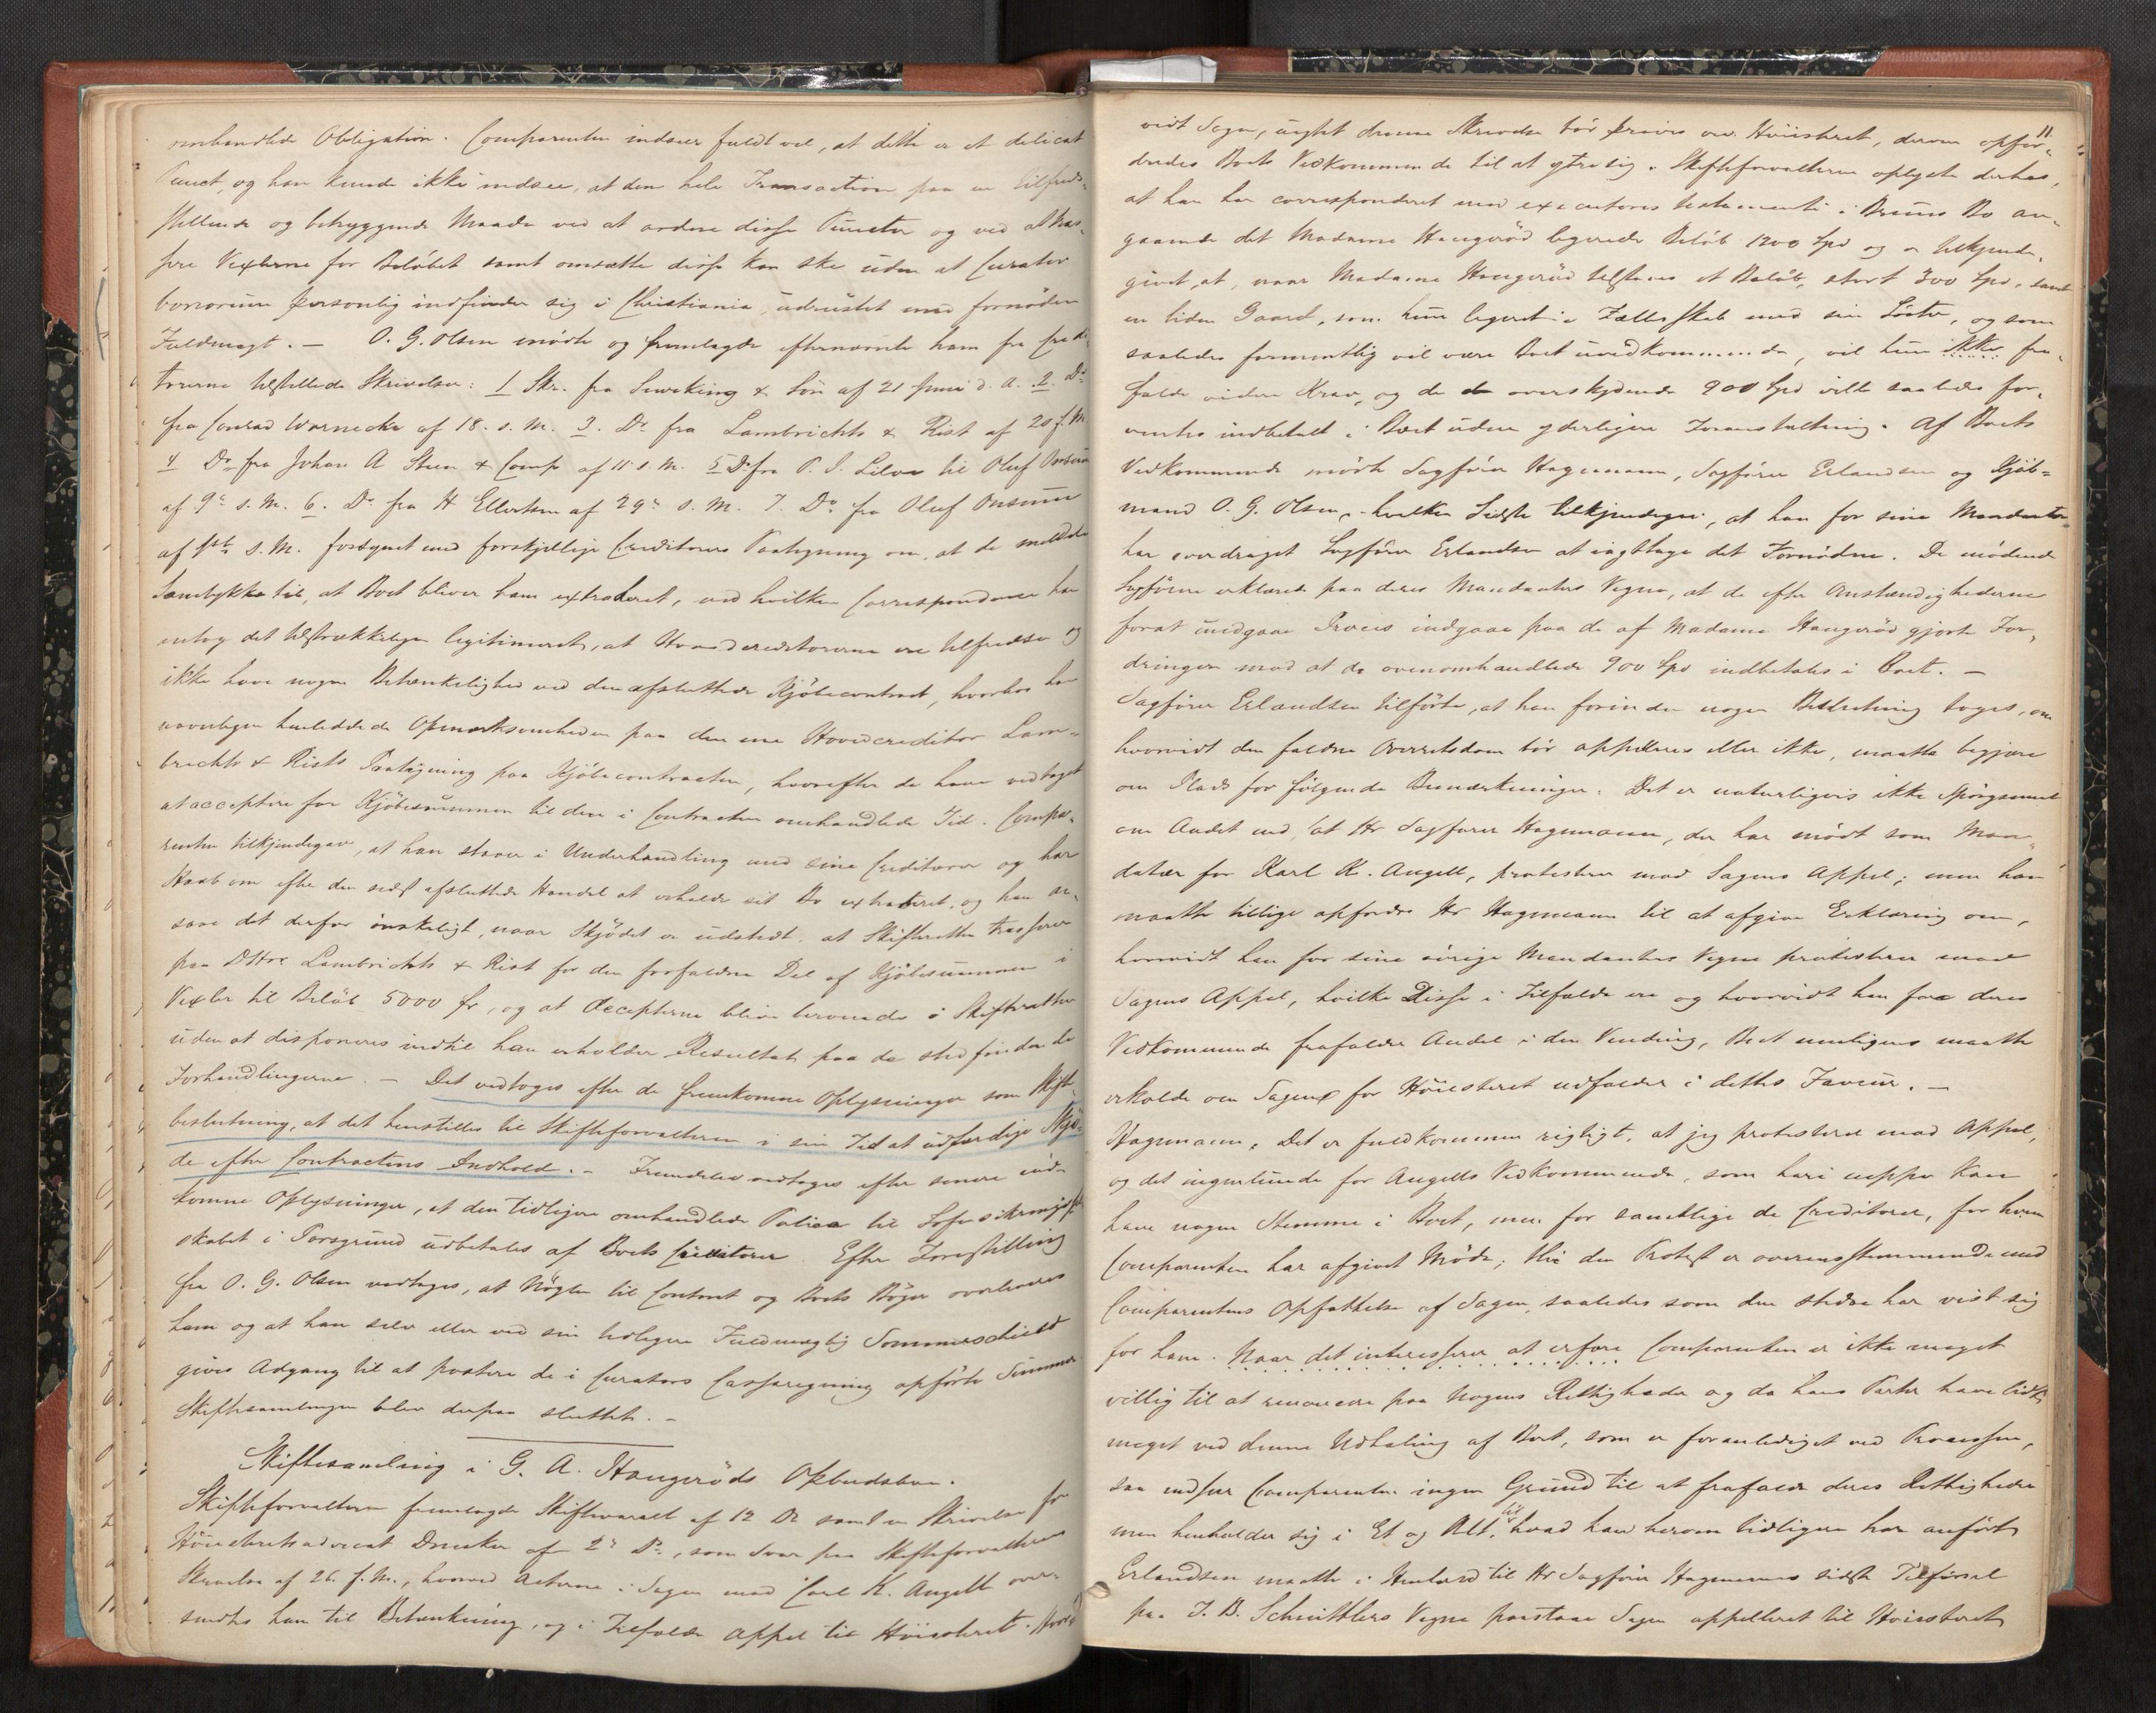 omhandlede Obligation. Comparenten indsaaer fuldt vel, at dette er et delicat
Punct, og han kunde ikke indsee, at den hele Transaction paa en tilfreds-
stillende og betryggende Maade ved at ordne disse Puncter og ved at tras-
sere Vexlerne for Beløbet samt omsætte disse kan ske uden at Curator
bonorum personlig indfinder sig i Christiania, udrustet med fornøden
Fuldmagt. — O. G. Olsen mødte og fremlagde efternævnte ham fra Credi-
torerne tilstillede Skrivelser: 1 Skr. fra Suwcking & Søn af 21 Juni d. A. 2. Do
fra Conrad Warnecke af 18. s. M. 3. Do fra Lambrichts & Rist af 20 f. M.
4 Do fra Johan A Steen & Comp af 11 s. M. 5 Do fra P. S. Lilov til Oluf Onsum
af 9de s. M. 6. Do fra H Ellertsen af 29de s. M. 7. Do fra Oluf Onsum
af 1ste s. M. forsynet med forskjellige Creditorers Paategning om, at de meddele
Samtykke til, at Boet bliver ham extraderet, ved hvilken Correspondance han
antog det tilstrækkeligen legitimeret, at Hovedcreditorerne ere tilfredse og
ikke have nogen Betænkelighed ved den afsluttede Kjøbecontract, hvorhos han
navnligen henledede Opmærksomheden paa den ene Hovedcreditor Lam-
brichts & Rists Paategning paa Kjøbecontracten, hvorefter de have vedtaget
at acceptere for Kjøbesummen til den i Contracten omhandlede Tid. Compa-
renten tilkjendegav, at han staaer i Underhandling med sine Creditorer og har
Haab om efter den sidst afsluttede Handel at erholde sit Bo extraderet, og han an-
saae det derfor ønskeligt, naar Skjødet er udstedt, at Skifteretten trasserer
paa DHrr Lambrichts & Rist for den forfaldne Del af Kjøbesummen i
Vexler til Beløb 5000 fr, og at Accepterne blive beroende i Skifteretten
uden at disponeres indtil han erholder Resultat paa de stedfindende
Forhandlingerne. — Det vedtoges efter de fremkomne Oplysninger som Skifte-
beslutning, at det henstilles til Skifteforvalteren i sin Tid at udfærdige Skjø-
de efter Contractens Indhold. — Fremdeles vedtoges efter senere ind-
komne Oplysninger, at den tidligere omhandlede Police til Søforsikringssel-
skabet i Porsgrund udbetales af Boets Creditorer. Efter Forestilling
fra O. G. Olsen vedtoges, at Nøglen til Contoret og Boets Bøger overleveres
ham og at han selv eller ved sin tidligere Fuldmægtig Sommerschield
gives Adgang til at postere de i Curators Cassaregning opførte Summer
Skiftesamlingen blev derpaa sluttet. —
Skiftesamling i G. A. Haugerøds Opbudsbo.
Skifteforvalteren fremlagde Skiftevarsel af 12 Ds samt en Skrivelse fra
Høiesteretsadvocat Duncker af 2den Ds, som Svar paa Skifteforvalterens
Skrivelse af 26. f. M., hvorved Acterne i Sagen mod Carl K. Angell over-
sendtes ham til Betænkning, og i Tilfælde Appel til Høiesteret.
11.
vidt Sagen, uagtet denne Skrivelse bør prøves ved Høiesteret, derom opfor-
dredes Boets Vedkommende til at yttre sig. Skifteforvalteren oplyste derhos,
at han har corresponderet med executores testamenti i Bruuns Bo an-
gaaende det Madame Haugerød legerede Beløb 1200 Spd og er tilkjende-
givet, at, naar Madame Haugerød tilstaaes et Beløb, stort 300 Spd, samt
en liden Gaard, som hun legeret i Fællesskab med sin Søster, og som
saaledes formentlig vil være Boet uvedkommende, vil hun ikke fra-
falde videre Krav, og de overskydende 900 Spd ville saaledes for-
ventes indbetalt i Boet uden yderligere Foranstaltning. Af Boets
Vedkommende mødte Sagfører Hagemann, Sagfører Erlandsen og Kjøb-
mand O. G. Olsen, hvilken Sidste tilkjendegav, at han for sine Mandanter
har overdraget Sagfører Erlandsen at iagttage det Fornødne. De mødende
Sagførere erklærede paa deres Mandanters Vegne, at de efter Omstændighederne
forat undgaae Proces indgaae paa de af Madame Haugerød gjorte For-
dringer mod at de ovenomhandlede 900 Spd indbetales i Boet. —
Sagfører Erlandsen tilførte, at han forinden nogen Beslutning toges, om
hvorvidt den faldne Overretsdom bør appelleres eller ikke, maatte begjære
om Plads for følgende Bemærkninger: Det er naturligvis ikke Spørgsmaal
om Andet end, at Hr Sagfører Hagemann, der har mødt som Man-
datar for Karl K. Angell, protesterer mod Sagens Appel; men han
maatte tillige opfordre Hr Hagemann til at afgive Erklæring om,
hvorvidt han for sine øvrige Mandanters Vegne protesterer mod
Sagens Appel, hvilke Disse i Tilfælde ere og hvorvidt han for deres
Vedkommende frafalder Andel i den Vinding, Boet muligens maatte
erholde om Sagen for Høiesteret udfalder i dettes Faveur. —
Hagemann: Det er fuldkommen rigtigt, at jeg protesterede mod Appel,
og det ingenlunde for Angells Vedkommende, som heri neppe kan
have nogen Stemme i Boet, men for samtlige de Creditorer, for hvem
Comparenten har afgivet Møde; thi den Protest er overensstemmende med
Comparentens Opfattelse af Sagen, saaledes som den stedse har vist sig
for ham. Naar det interesserer at erfare Comparenten er ikke meget
villig til at renoncere paa Nogens Rettigheder og da hans Parter have lidt
meget ved denne Udhaling af Boet, som er foranlediget ved Processen,
saa indseer Comparenten ingen Grund til at frafalde deres Rettigheder
men henholder sig i Et og Alt, til hvad han herom tidligere har anført
Erlandsen maatte i Henhold til Hr Sagfører Hagemanns sidste Tilførsel
paa J. B. Schnitlers Vegne paastaae Sagen appelleret til Høiesteret